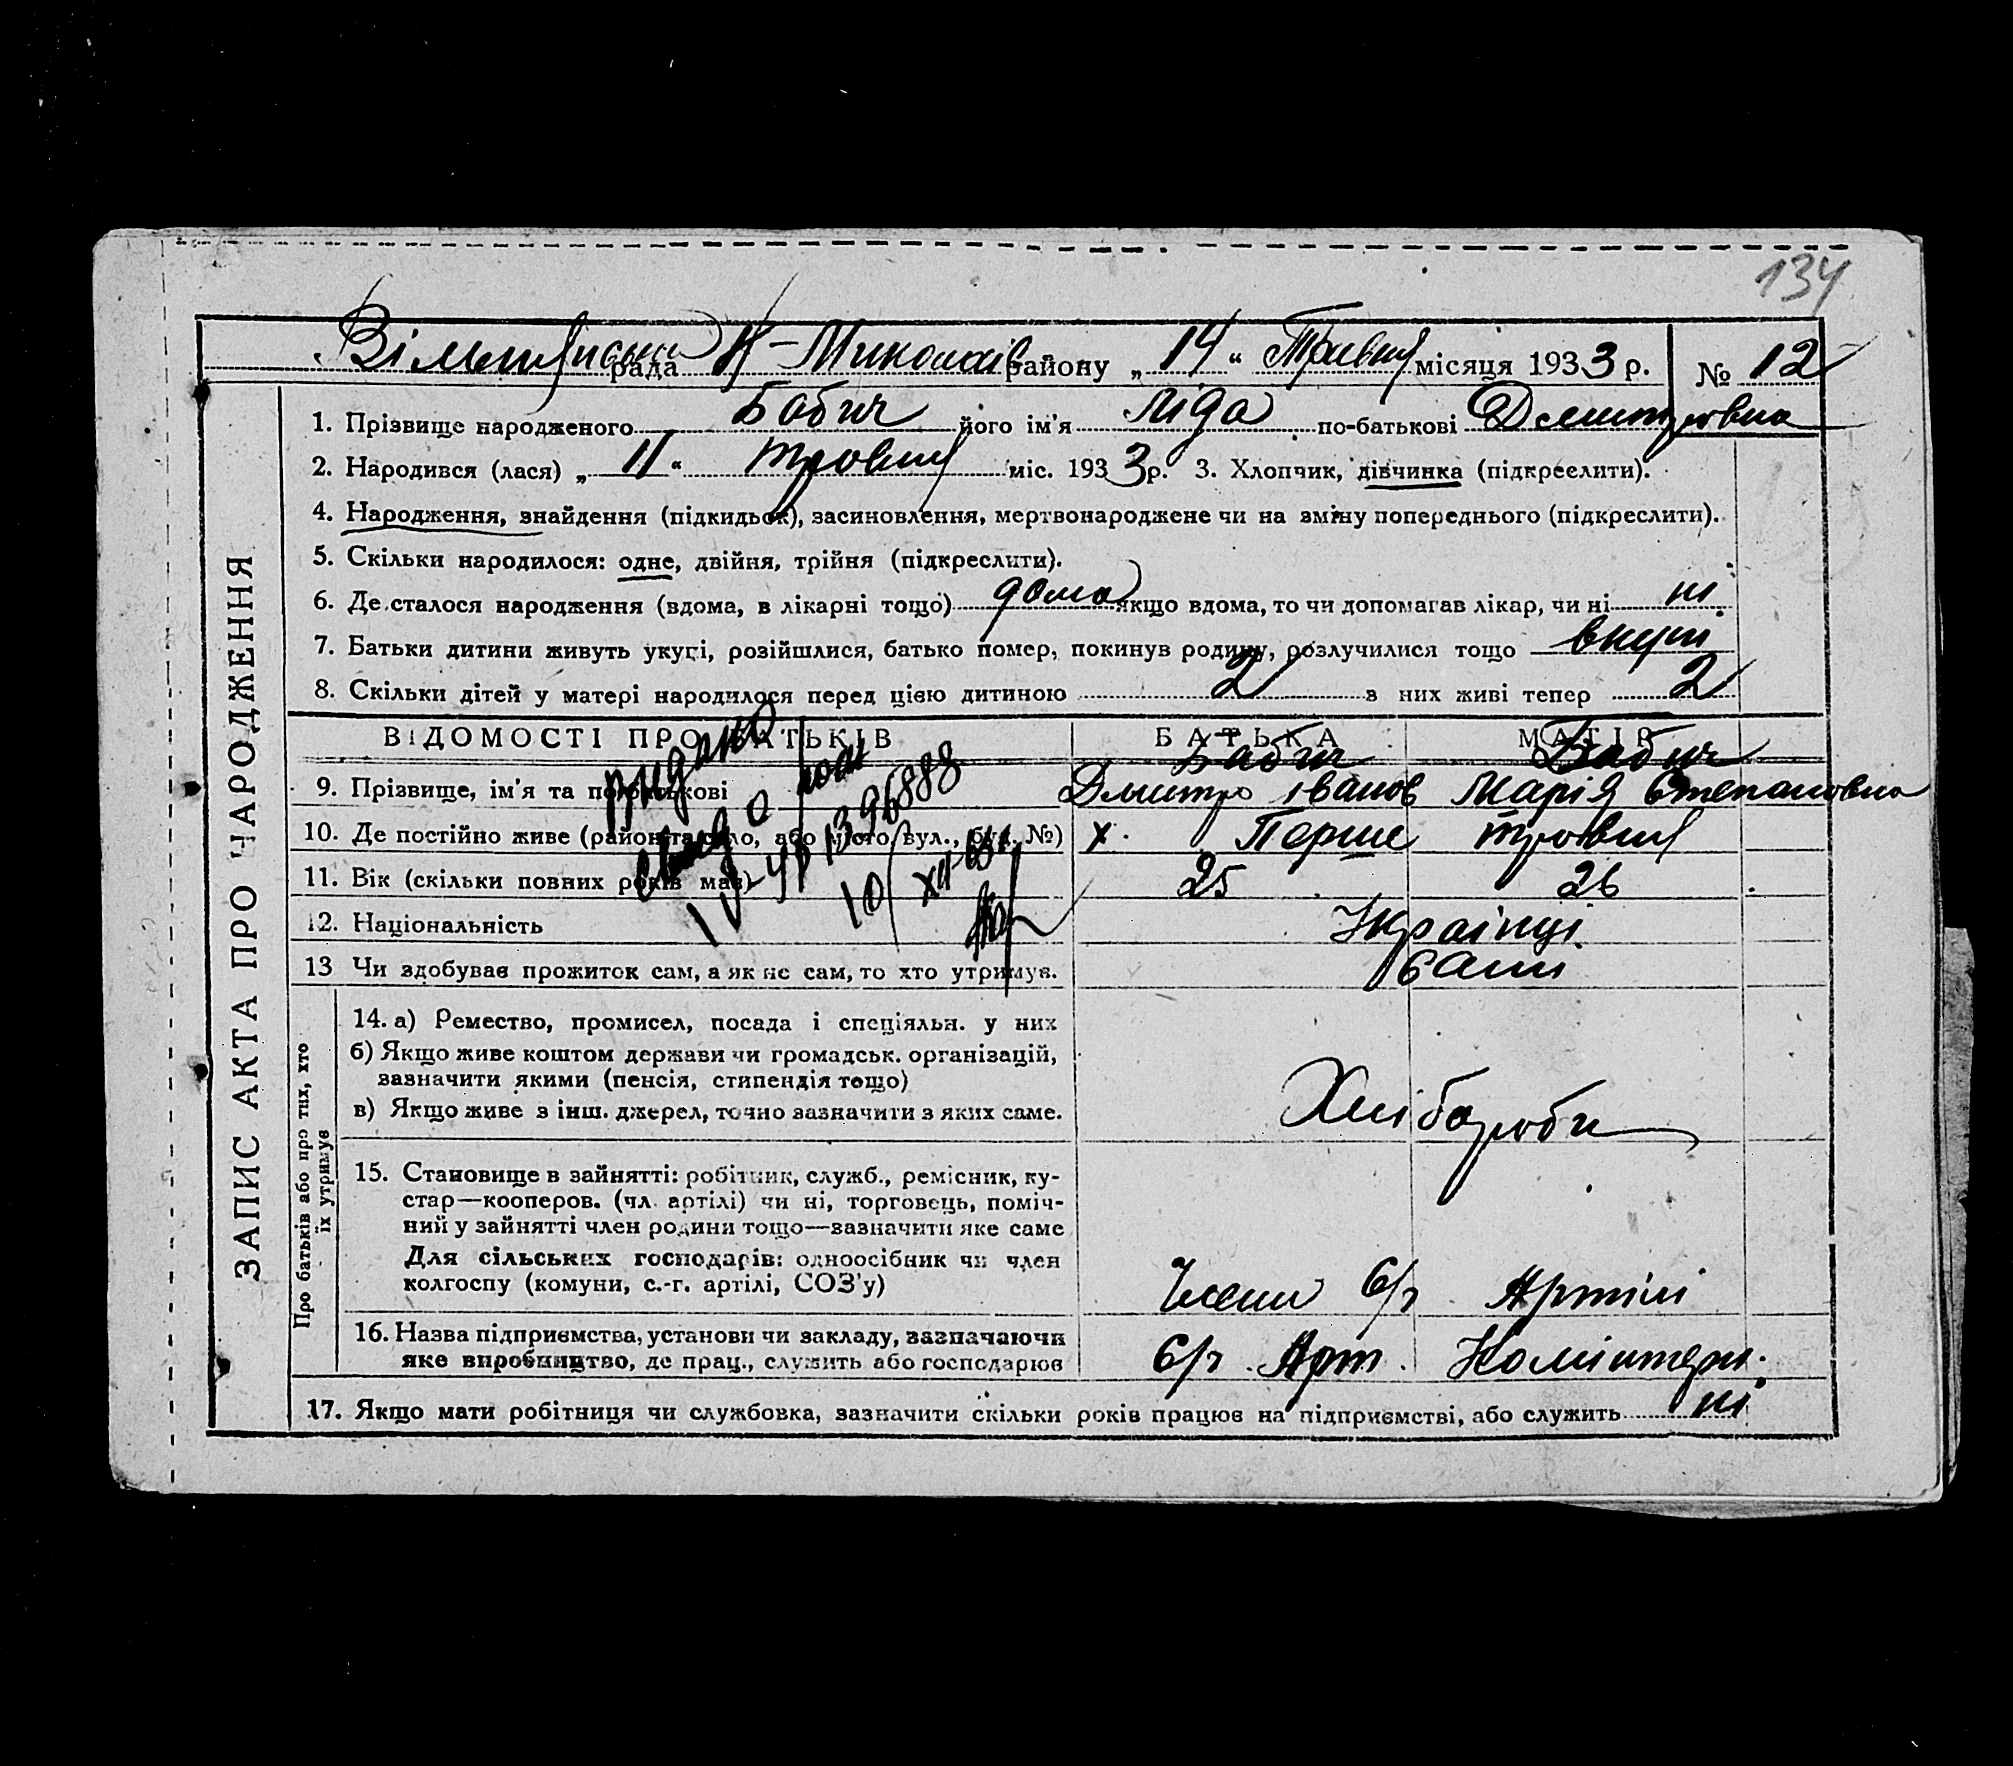 134
Вільнянська рада Н-Миколаїв району „14“ Травня місяця 1933 р. № 12
1. Прізвище народженого Бабич його ім'я Ліда по-батькові Дмитровна
2. Народився (лася) „11“ травня міс. 1933 р. 3. Хлопчик, дівчинка (підкреслити).
4. Народження, знайдення (підкидьок), засиновлення, мертвонароджене чи на зміну попереднього (підкреслити).
5. Скільки народилося: одне, двійня, трійня (підкреслити).
6. Де сталося народження (вдома, в лікарні тощо) дома якщо вдома, то чи допомагав лікар, чи ні ні.
7. Батьки дитини живуть укупі, розійшлися, батько помер, покинув родину, розлучилися тощо вкупі
8. Скільки дітей у матері народилося перед цією дитиною 2 з них живі тепер 2
ВІДОМОСТІ ПРО БАТЬКІВ БАТЬКА МАТІР
Бабич Бабич
9. Прізвище, ім'я та по-батькові Дмитро Іванов Марія Степановна
10. Де постійно живе (район та село, або місто, вул., буд. №) х. Перше травня
11. Вік (скільки повних років має) 25 26
12. Національність Українці
13 Чи здобував прожиток сам, а як не сам, то хто утримув. Сами
видано
свид о рожд
1396888
10/XII-
ЗАПИС АКТА ПРО НАРОДЖЕННЯ
Про батьків або про тих, хто їх утримує
14. а) Ремество, промисел, посада і спеціяльн. у них
б) Якщо живе коштом держави чи громадськ. організацій,
зазначити якими (пенсія, стипендія тощо)
в) Якщо живе з інш. джерел, точно зазначити з яких саме.
Хлібороби
15. Становище в зайнятті: робітник, служб., ремісник, ку-
стар—кооперов. (чл. артілі) чи ні, торговець, поміч-
ний у зайнятті член родини тощо—зазначити яке саме
Для сільських господарів: одноосібник чи член
колгоспу (комуни, с.-г. артілі, СОЗ'у)
Члени С/г Артілі
16. Назва підприємства, установи чи закладу, зазначаючи
яке виробництво, де прац., служить або господарює
С/г Арт. Комінтерн.
17. Якщо мати робітниця чи службовка, зазначити скільки років працює на підприємстві, або служить ні